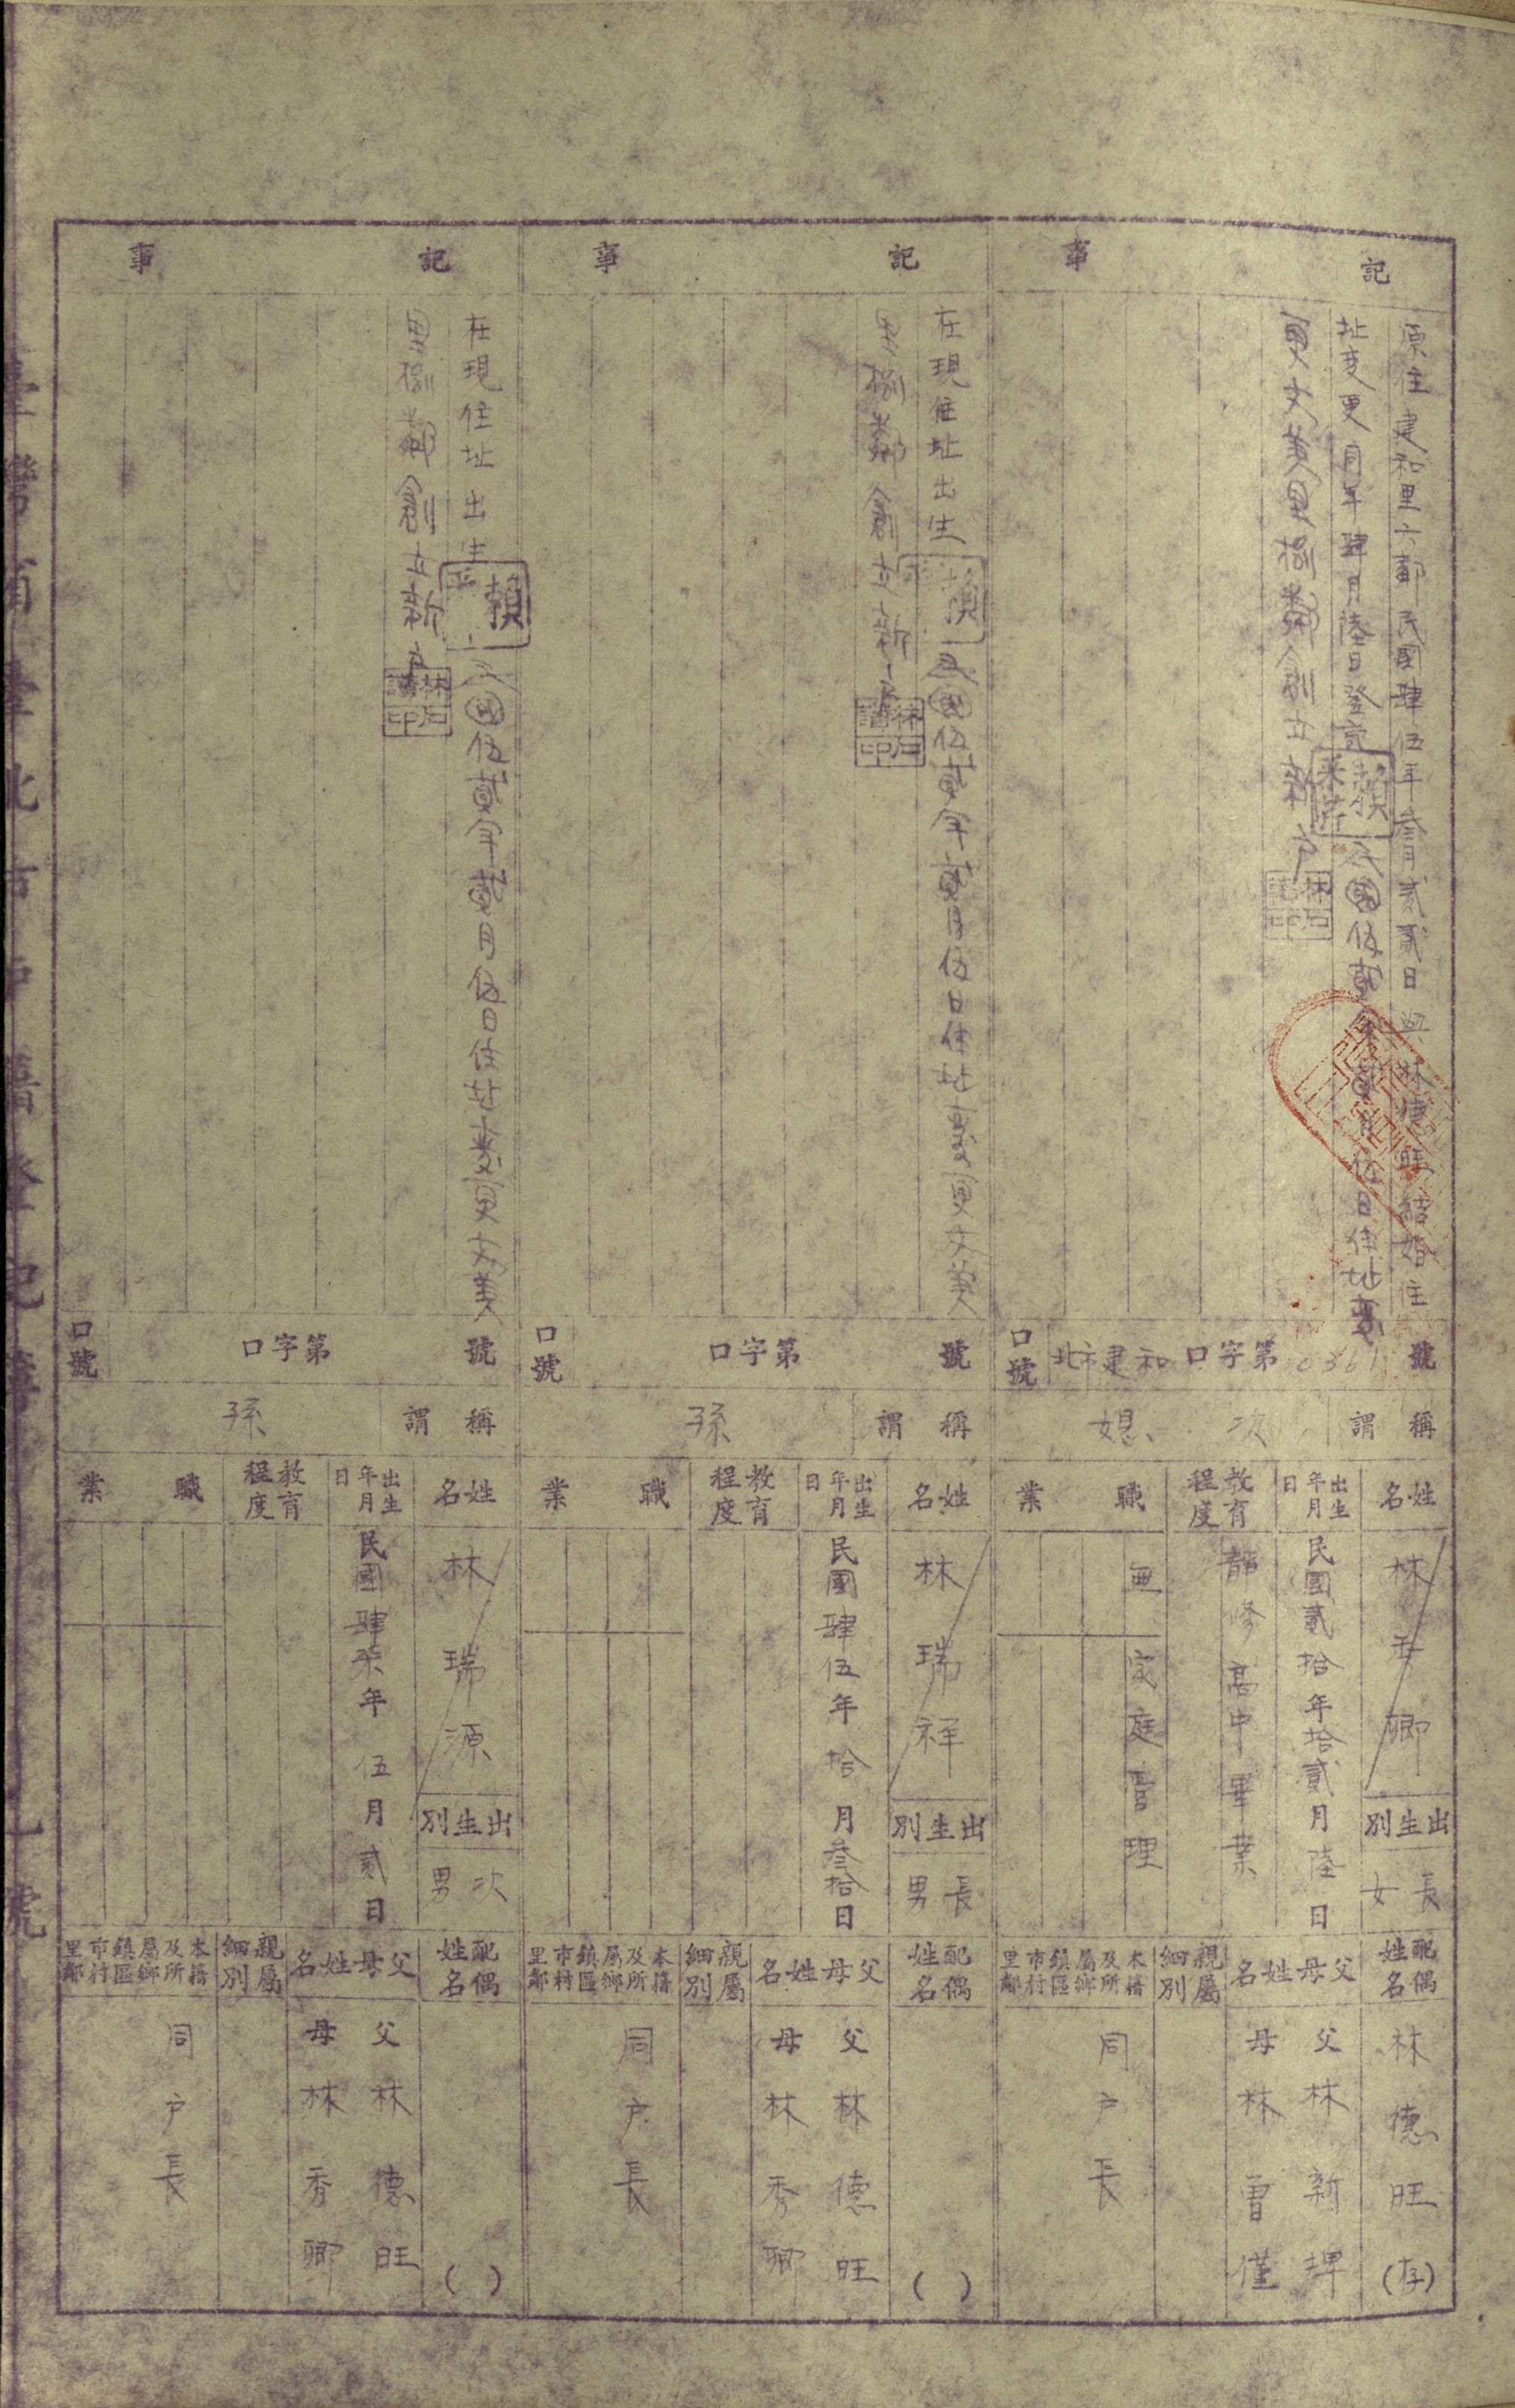 記事
原住建和里六鄰民國肆伍年叁月貳貳日與林德旺結婚住
址変更同年肆月陸日登記
賴
民國伍貳年貳月伍日住址變
更文美里捌鄰創立新戶
口號
北市建和口字第0361號
稱謂
次媳
姓名
林秀卿
出生別
長女
出生年月日
民國貳拾年拾貳月陸日
教育程度
高中畢業
職業
家庭管理
配偶姓名
林德旺(存)
父母姓名
父林新
母林曾僅
親屬細別
本籍及所屬鄉鎮區市村里鄰
同戶長
記事
在現住址出生
賴
民國伍貳年貳月伍日住址變更文美
里捌鄰創立新戶
口號
口字第 號
稱謂
孫
姓名
林瑞祥
出生別
長男
出生年月日
民國肆伍年拾月叁拾日
教育程度
職業
配偶姓名
( )
父母姓名
父林德旺
母林秀卿
親屬細別
本籍及所屬鄉鎮區市村里鄰
同戶長
記事
在現住址出生
賴
民國伍貳年貳月伍日住址變更文美
里捌鄰創立新戶
口號
口字第 號
稱謂
孫
姓名
林瑞源
出生別
次男
出生年月日
民國肆柒年伍月貳日
教育程度
職業
配偶姓名
( )
父母姓名
父林德旺
母林秀卿
親屬細別
本籍及所屬鄉鎮區市村里鄰
同戶長